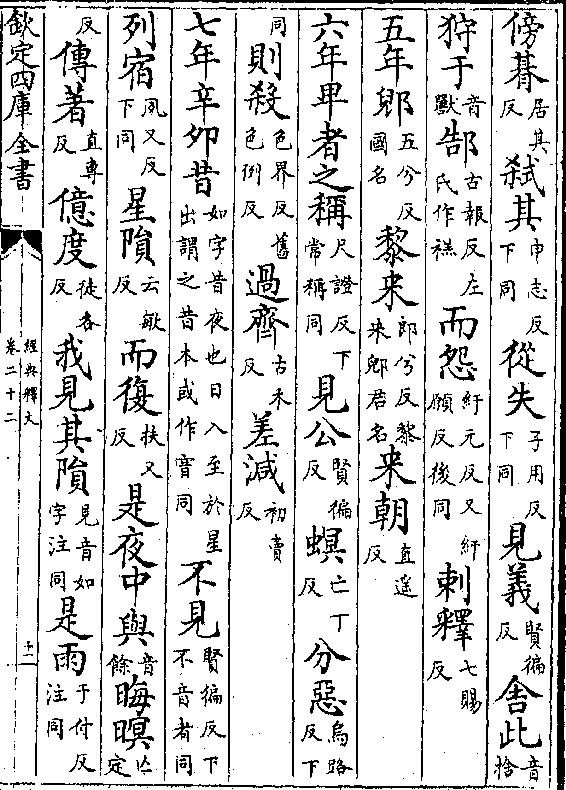 傍朞居其反弑其申志反下同從失子用反下同見義賢徧反舍此音捨
狩于音獸郜古報反左氏作禚而怨紆元反又紆願反後同刺釋七賜反
五年郳五兮反國名黎来郎兮反黎来郳君名来朝直遥反
六年卑者之稱尺證反下常稱同見公賢徧反螟亡丁反分惡烏路反下
同則殺色界反舊色例反過齊古禾反差減初賣反
七年辛夘昔如字昔夜也日入至於星出謂之昔本或作同不見賢徧反下不音者同
列宿夙又反下同星隕云敏反而復扶又反是夜中與音餘晦暝亡定
反傳著直專反億度徒各反我見其隕見音如字注同是雨于付反注同
欽定四庫全書
經典釋文
卷二十二